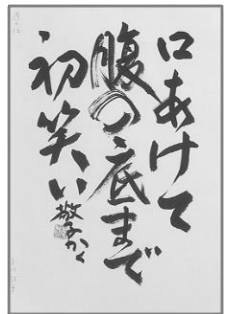 口あけて
腹の底まで
初笑い
敬子かく